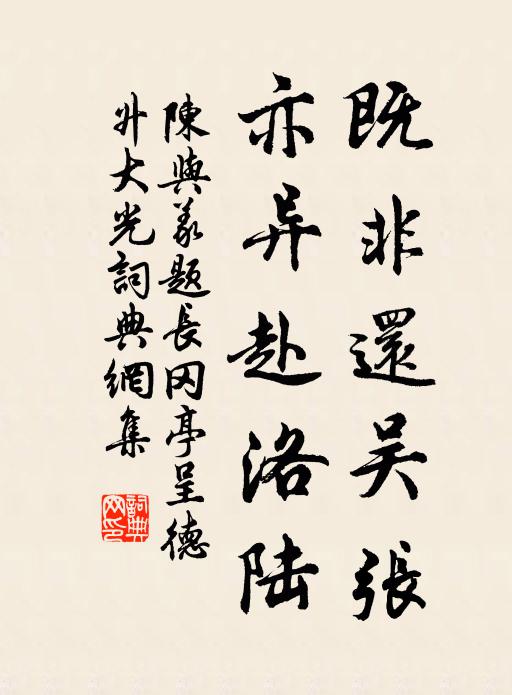 既非還吴張
亦异赴洛陆
陳與義題長冈亭呈德
升大光詞典網集
詞典网印